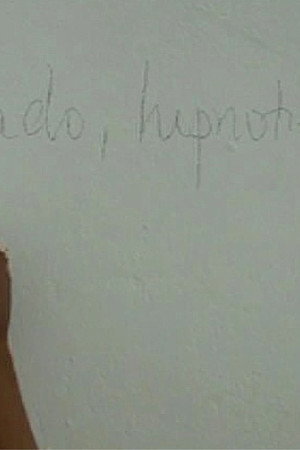 ado, hipnoti